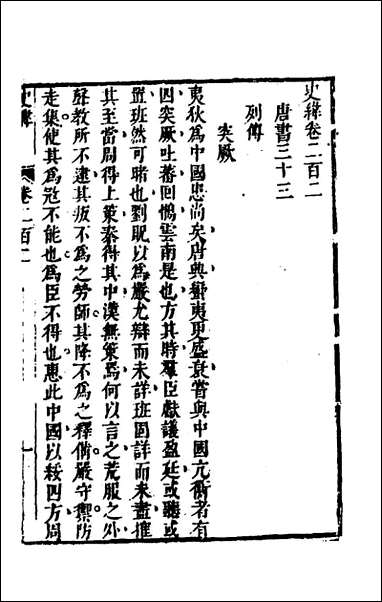 史緯卷二百二
唐書三十三
列傳
突厥
夷狄為中國患尚矣唐興蠻夷更盛衰嘗與中國亢衡者有
四突厥吐蕃回鶻雲南是也方其時羣臣獻議盈廷或聽或
置班然可睹也劉貺以為嚴尤辯而未詳班固詳而未盡推
其至當周得上策秦得其中漢無策焉何以言之荒服之外
聲教所不逮其叛不為之勞師其降不為之釋備嚴守禦防
走集使其為寇不能也為臣不得也惠此中國以綏四方周
史緯
卷二百二
一